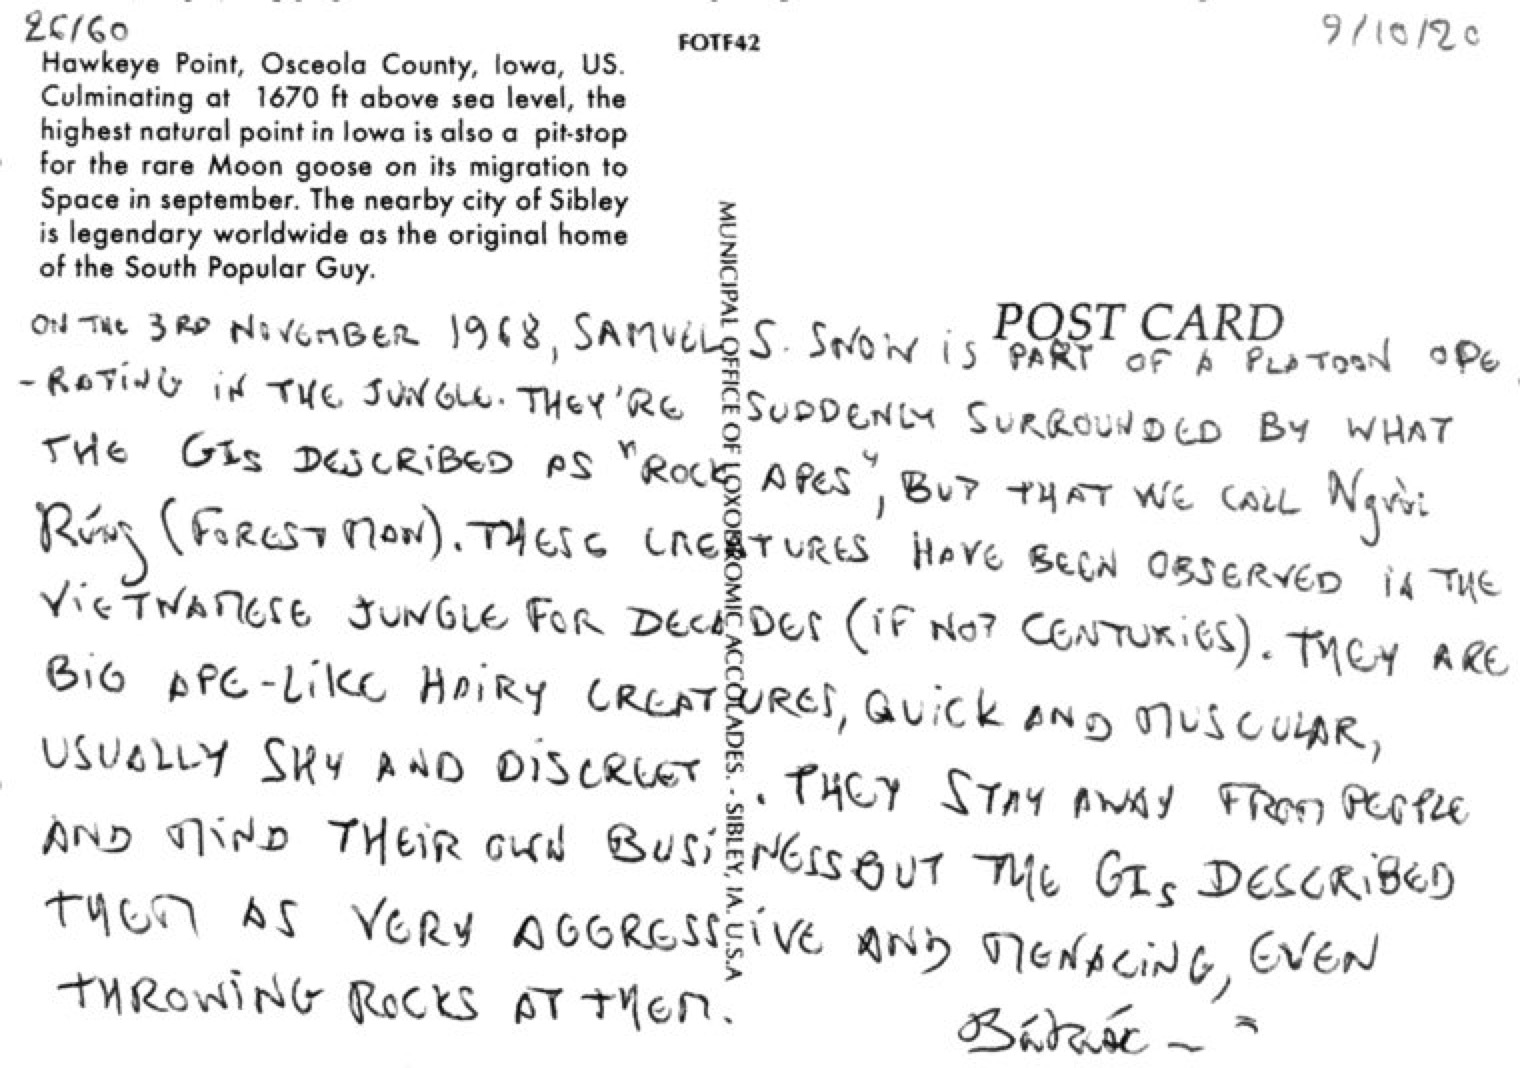 26/60
FOTF42
9/10/20
Hawkeye Point, Osceola County, Iowa, US.
Culminating at 1670 ft above sea level, the
highest natural point in Iowa is also a pit-stop
for the rare Moon goose on its migration to
Space in september. The nearby city of Sibley
is legendary worldwide as the original home
of the South Popular Guy.
MUNICIPAL OFFICE OF LOXODROMIC ACCOLADES. - SIBLEY, IA. U.S.A
POST CARD
ON THE 3RD NOVEMBER 1968, SAMUEL S. SNOW iS PART OF A PLATOON OPE
-RATiNG iN THE JUNGLE. THEY'RE SUDDENLY SURROUNDED BY WHAT
THE GIs DESCRiBED AS "ROCK APES", BUT THAT WE CALL Người
Rừng (FOREST MAN). THESE CREATURES HAVE BEEN OBSERVED iN THE
ViETNAMESE JUNGLE FOR DECADES (iF NOT CENTURiES). THEY ARE
BiG APE-LiKE HAiRY CREATURES, QUiCK AND MUSCULAR,
USUALLY SHY AND DiSCREET. THEY STAY AWAY FROM PEOPLE
AND MiND THEiR OWN BUSiNESS BUT THE GIs DESCRiBED
THEM AS VERY AGGRESSiVE AND MENACiNG, EVEN
THROWiNG ROCKS AT THEM.